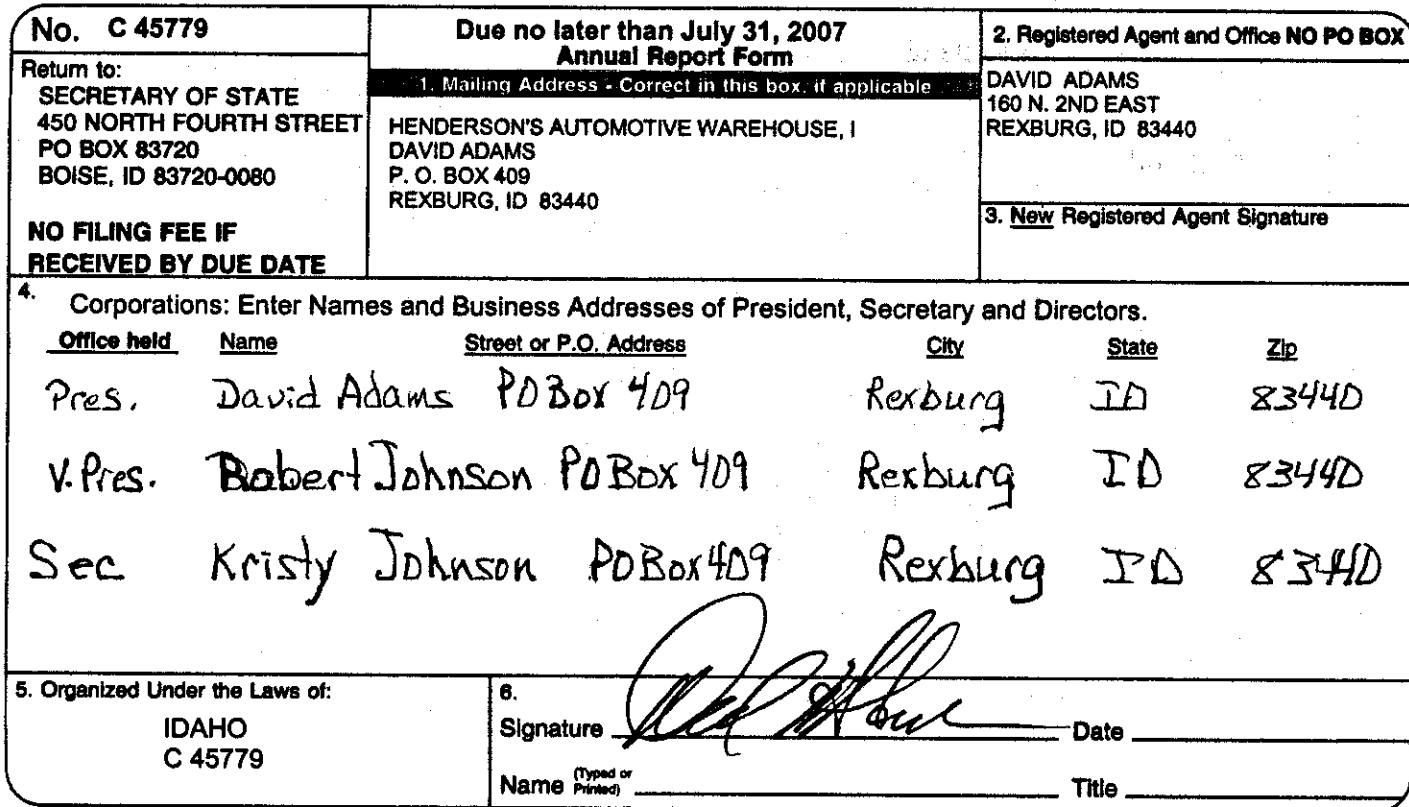 No. C 45779
Return to:
SECRETARY OF STATE
450 NORTH FOURTH STREET
PO BOX 83720
BOISE, ID 83720-0080
NO FILING FEE IF
RECEIVED BY DUE DATE
Due no later than July 31, 2007
Annual Report Form
1. Mailing Address - Correct in this box, if applicable
HENDERSON'S AUTOMOTIVE WAREHOUSE, I
DAVID ADAMS
P. O. BOX 409
REXBURG, ID 83440
2. Registered Agent and Office NO PO BOX
DAVID ADAMS
160 N. 2ND EAST
REXBURG, ID 83440
3. New Registered Agent Signature
4. Corporations: Enter Names and Business Addresses of President, Secretary and Directors.
Office held Name Street or P.O. Address City State Zip
Pres. David Adams PO Box 409 Rexburg ID 83440
V. Pres. Robert Johnson PO Box 409 Rexburg ID 83440
Sec Kristy Johnson PO Box 409 Rexburg ID 83440
5. Organized Under the Laws of:
IDAHO
C 45779
6.
Signature Date
Name (Typed or Printed) Title